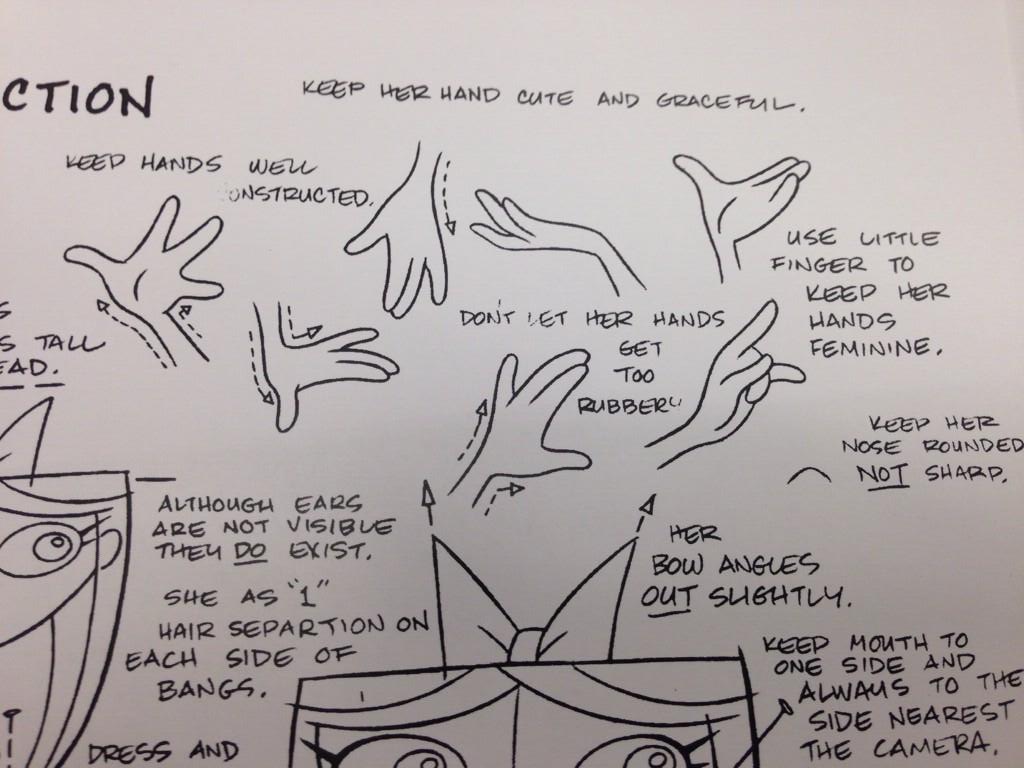 CTION
KEEP HER HAND CUTE AND GRACEFUL.
KEEP HANDS WELL
ONSTRUCTED.
USE LITTLE
FINGER TO
KEEP HER
HANDS
FEMININE.
DON'T LET HER HANDS
GET
TOO
RUBBERY
S
S TALL
EAD.
KEEP HER
NOSE ROUNDED
NOT SHARP.
ALTHOUGH EARS
ARE NOT VISIBLE
THEY DO EXIST.
SHE AS "1"
HAIR SEPARTION ON
EACH SIDE OF
BANGS.
HER
BOW ANGLES
OUT SLIGHTLY.
KEEP MOUTH TO
ONE SIDE AND
ALWAYS TO THE
SIDE NEAREST
THE CAMERA.
DRESS AND